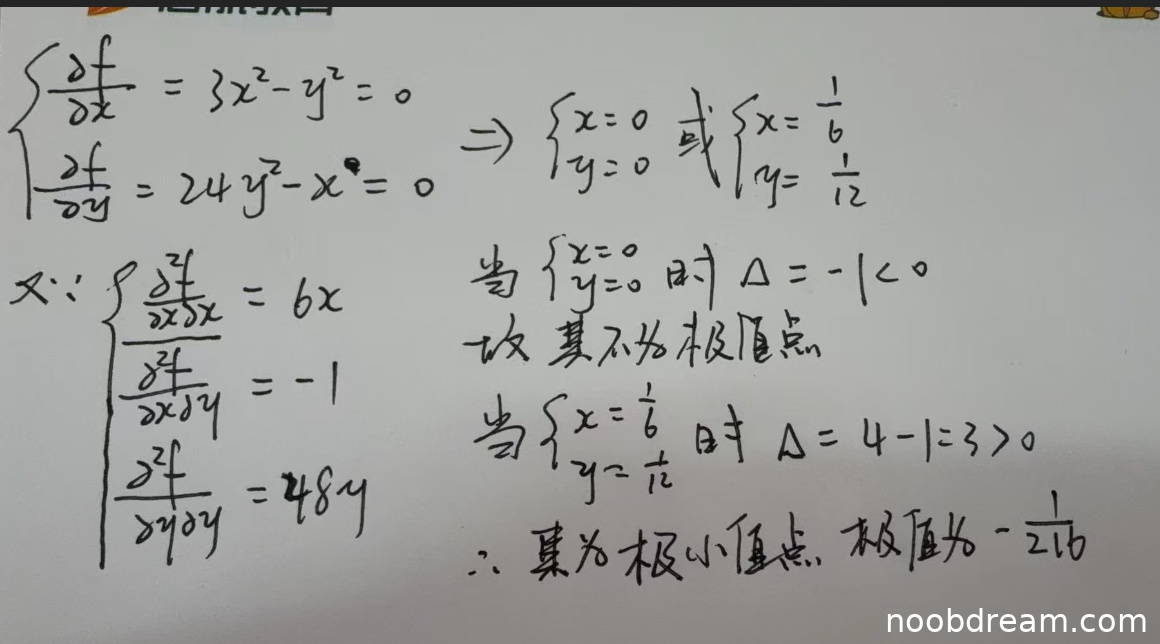 { ∂f/∂x = 3x² - y² = 0
{ ∂f/∂y = 24y² - x = 0
⇒ { x = 0 y = 0 或 { x = 1/6 y = 1/12
又∵ { ∂²f/∂x∂x = 6x
∂²f/∂x∂y = -1
∂²f/∂y∂y = 48y
当 { x=0 y=0 时 Δ = -1 < 0
故其不为极值点
当 { x = 1/6 y = 1/12 时 Δ = 4 - 1 = 3 > 0
∴ 其为极小值点 极值为 - 1/216
noobdream.com